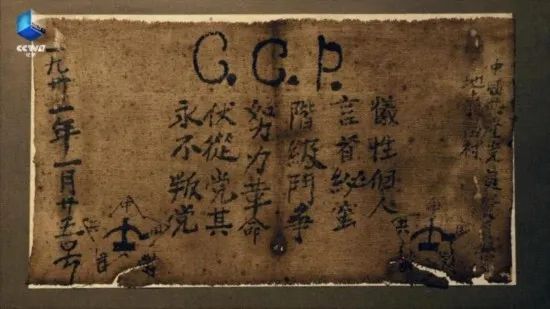 CCTV9
C.C.P.
中國共產党員
地点北田村
犧牲個人
言首秘蜜
階級鬥爭
努力革命
伏從党其
永不叛党
一九卅一年一月廿五号